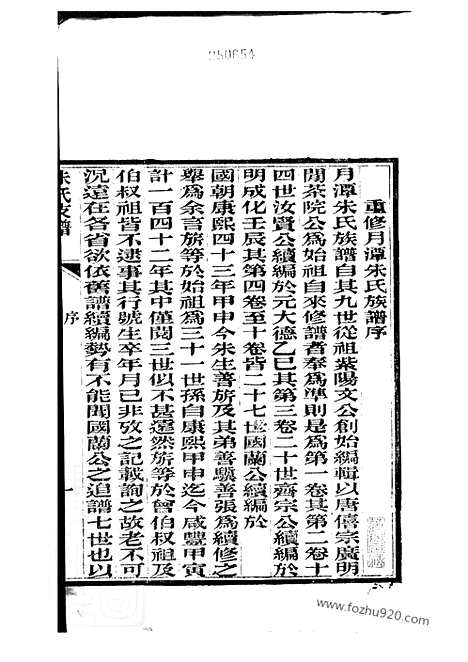 250654
重修月潭朱氏族譜序
月潭朱氏族譜自其九世從祖紫陽文公創始編輯以唐僖宗廣明
間茶院公為始祖自來修譜者奉為準則是為第一卷其第二卷十
四世汝賢公續編於元大德乙巳其第三卷二十世齋宗公續編於
明成化壬辰其第四卷至十卷皆二十七世國蘭公續編於
國朝康熙四十三年甲申今朱生善旂及其弟善驥善張為續修之
舉為余言旂等於始祖為三十一世孫自康熙甲申迄今咸豐甲寅
計一百四十二年其中僅閱三世似不甚遠然旂等於曾伯叔祖及
伯叔祖皆不逮事其行號生卒年月已非攷之記載詢之故老不可
況遠在各省欲依舊譜續編勢有不能聞國蘭公之追譜七世也以
朱氏支譜
序
一
www.fozhu920.com